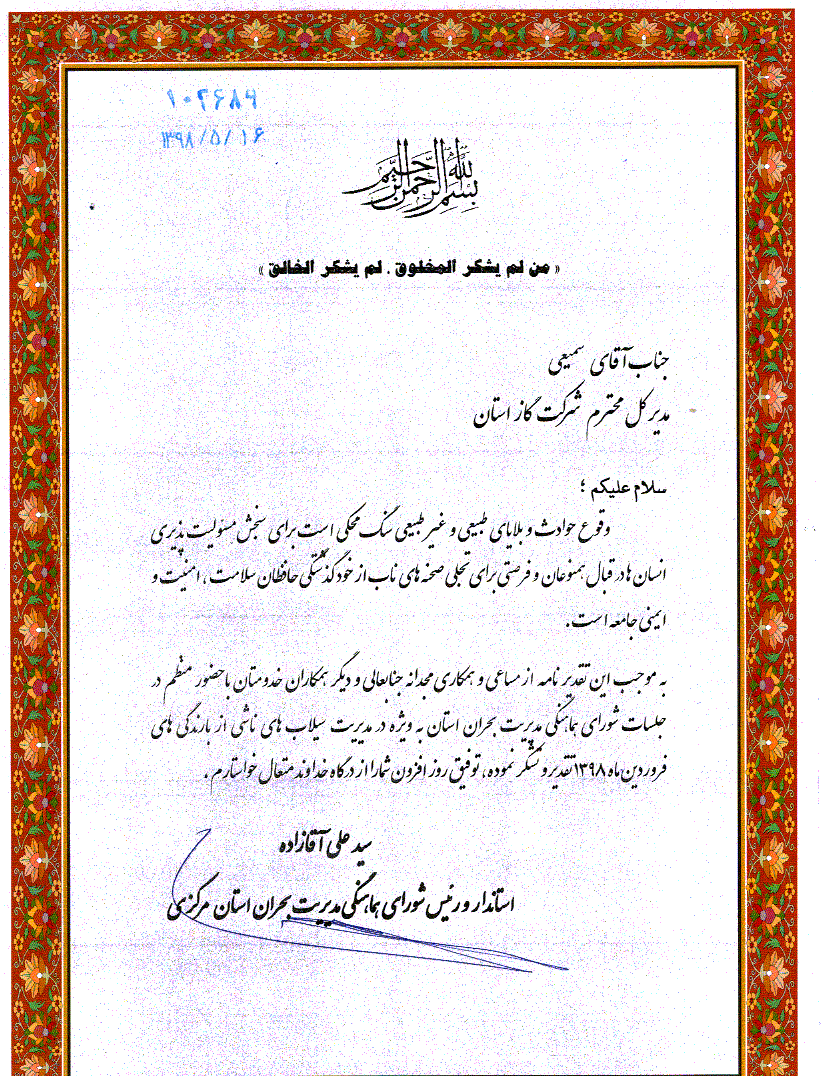 ۱۰۲۶۸۹
۱۳۹۸/۵/۱۶
بسم الله الرحمن الرحیم
« من لم یشکر المخلوق . لم یشکر الخالق »
جناب آقای سمیعی
مدیرکل محترم شرکت گاز استان
سلام علیکم ؛
وقوع حوادث و بلایای طبیعی و غیر طبیعی سنگ محکی است برای سنجش مسئولیت پذیری
انسان ها در قبال همنوعان و فرصتی برای تجلی صحنه های ناب از خود گذشتگی حافظان سلامت ، امنیت و
ایمنی جامعه است .
به موجب این تقدیر نامه از مساعی و همکاری مجدانه جنابعالی و دیگر همکاران خدومتان با حضور منظم در
جلسات شورای هماهنگی مدیریت بحران استان به ویژه در مدیریت سیلاب های ناشی از بارندگی های
فروردین ماه ۱۳۹۸ تقدیر و تشکر نموده ، توفیق روز افزون شما را از درگاه خداوند متعال خواستارم .
سید علی آقازاده
استاندار و رئیس شورای هماهنگی مدیریت بحران استان مرکزی